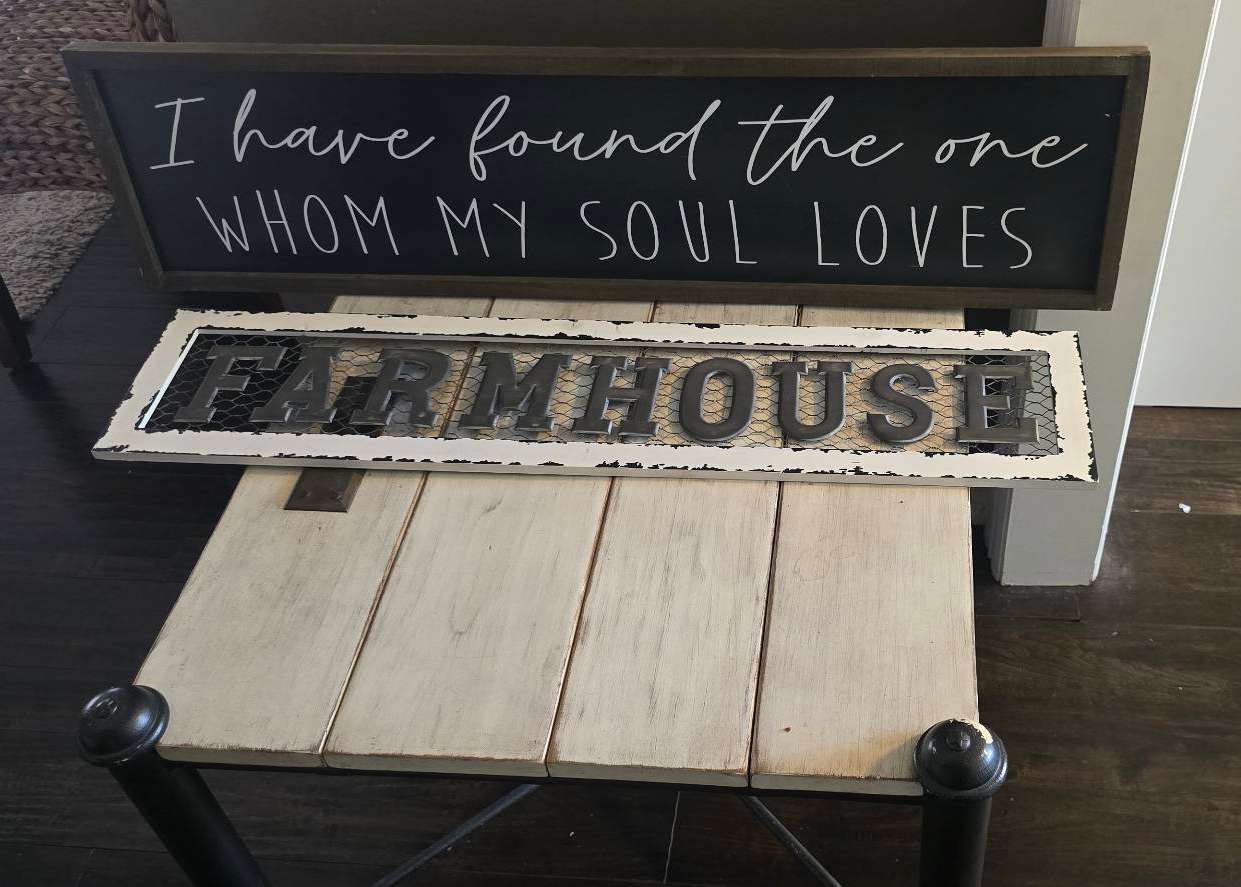 I have found the one
WHOM MY SOUL LOVES
FARMHOUSE